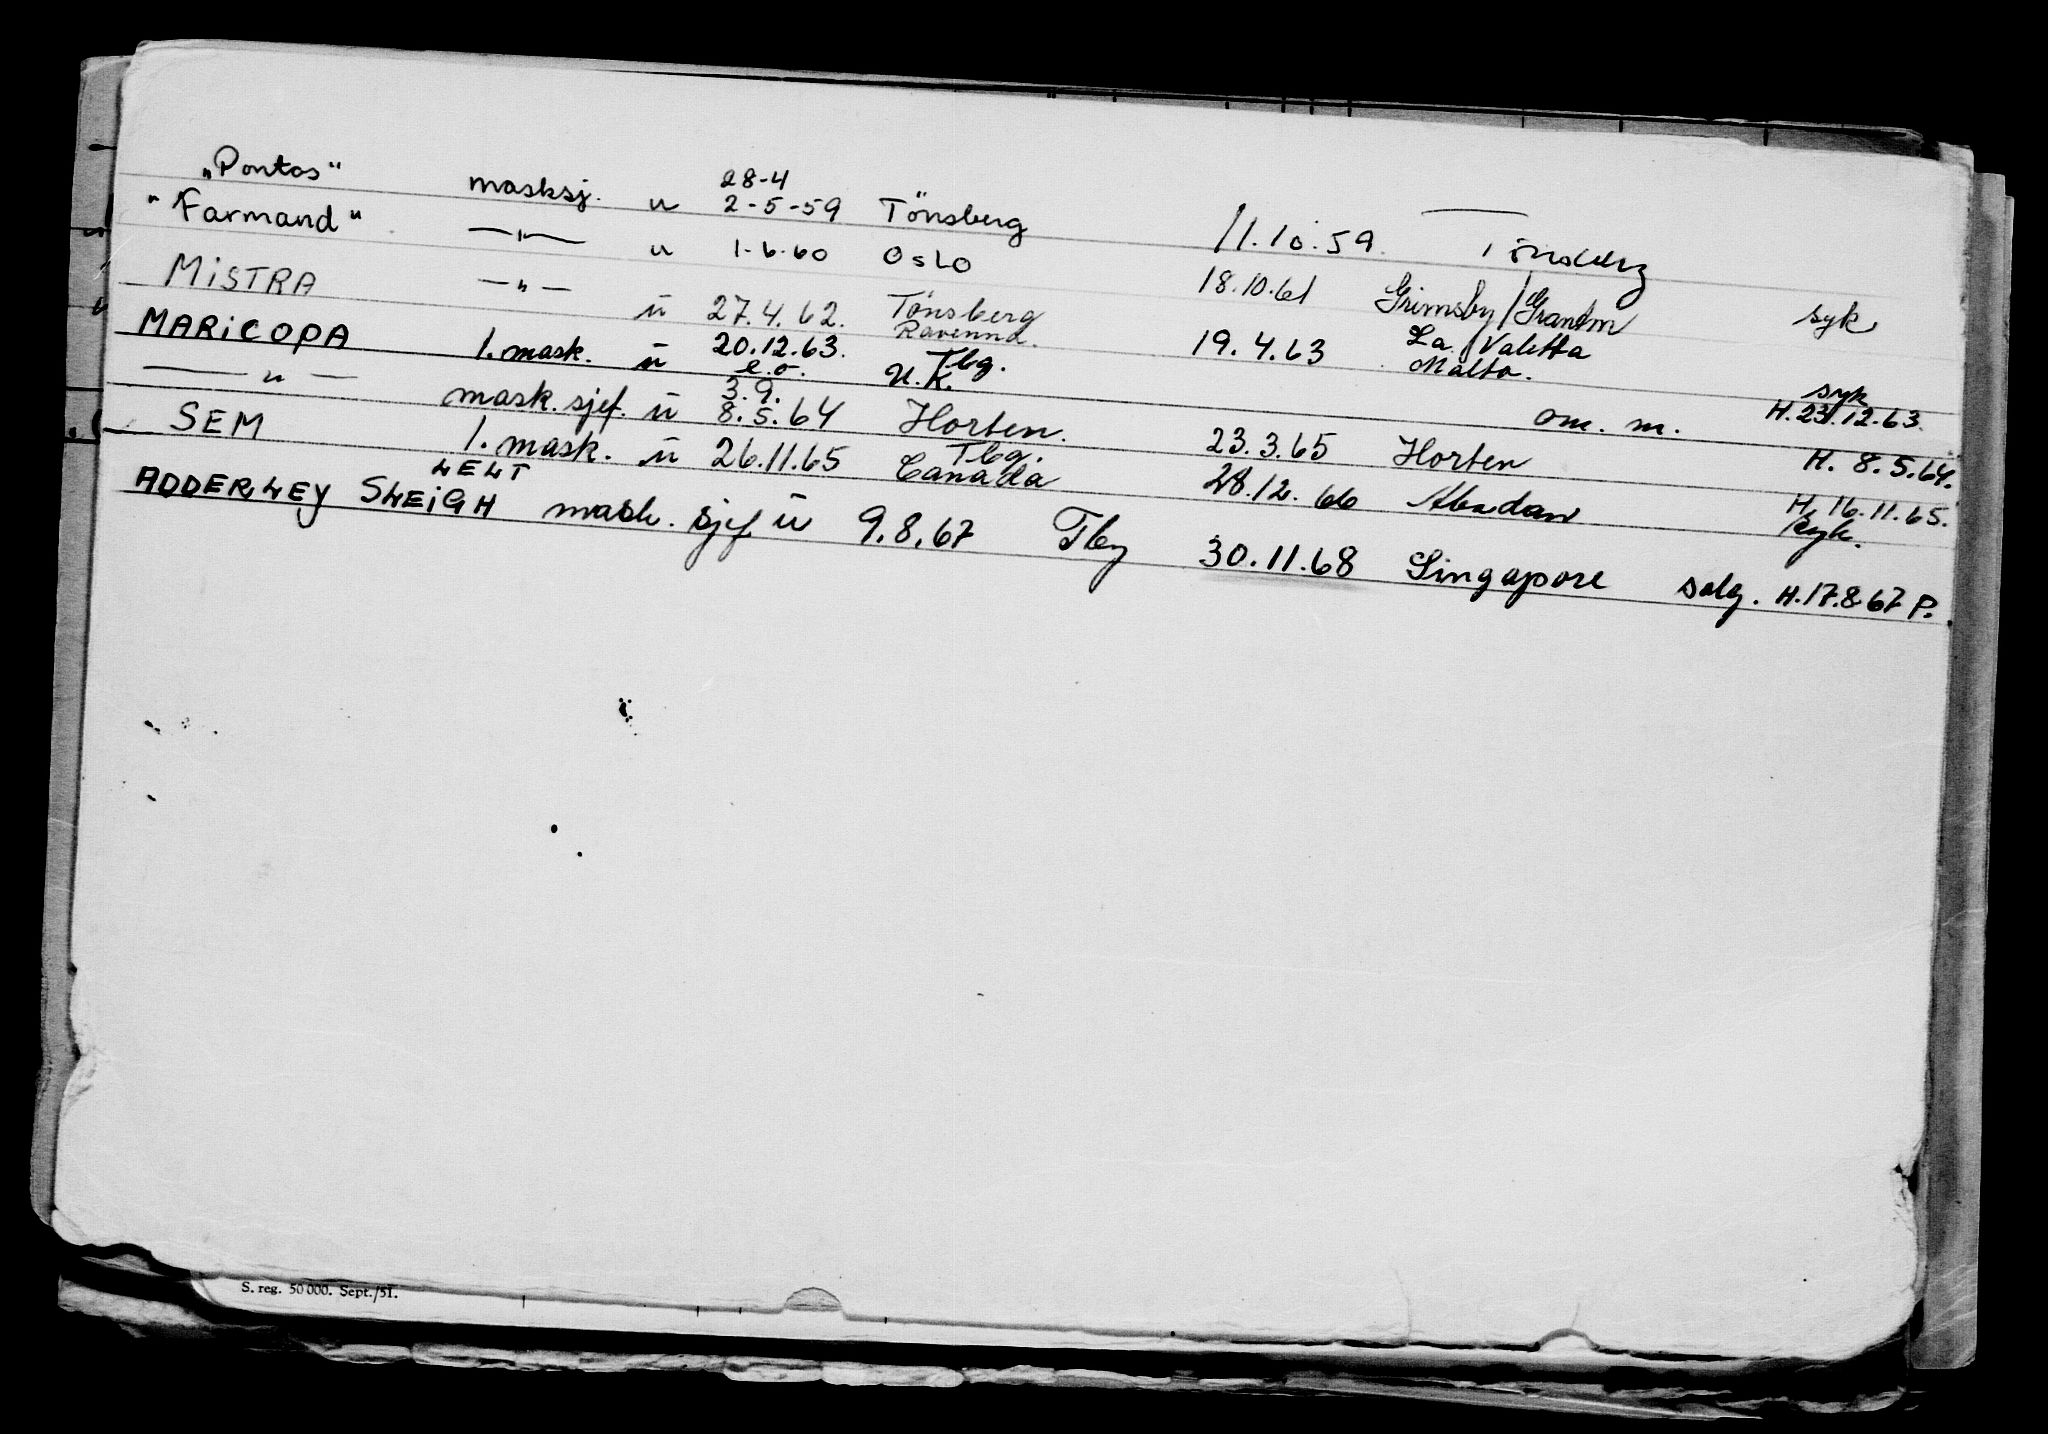 „Pontos“ masksj. u 28-4 2-5-59 Tönsberg 11.10.59. Tönsberg
"Farmand" —"— u 1.6.60 Oslo 18.10.61 Grimsby/Grantm syk
MiSTRA —"— ü 27.4.62. Tönsberg Ravenna. 19.4.63 La Valetta Malta. syk
MARiCOPA 1. mask. ü 20.12.63. e.o. Tbg. U.K. om. m. H. 23.12.63.
—"— mask. sjef. ü 3.9. 8.5.64 Horten. 23.3.65 Horten H. 8.5.64.
SEM 1. mask. ü 26.11.65 Tbg. Canada 28.12.66 Abadan H. 16.11.65. syk.
ADDERLEY SLEiGH LELT mask. sjef ü 9.8.67 Tbg 30.11.68 Singapore salg. H.17.8.67 P.
S. reg. 50 000. Sept./51.